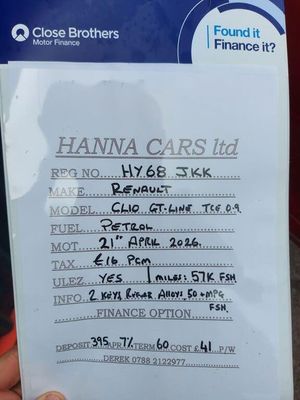 Close Brothers
Motor Finance
Found it
Finance it?
HANNA CARS ltd
REG NO.....HY68 JKK
MAKE.....RENAULT
MODEL...CLIO GT-LINE TCE 0.9
FUEL.....PETROL
MOT...21ST APRIL 2026.
TAX.....£16 PCM
ULEZ....YES | MILES: 57K FSH
INFO. 2 KEYS, 50+MPG
FSH.
........FINANCE OPTION........
DEPOSIT.395.APR.7%TERM 60 COST £41 P/W
DEREK 0788 2122977